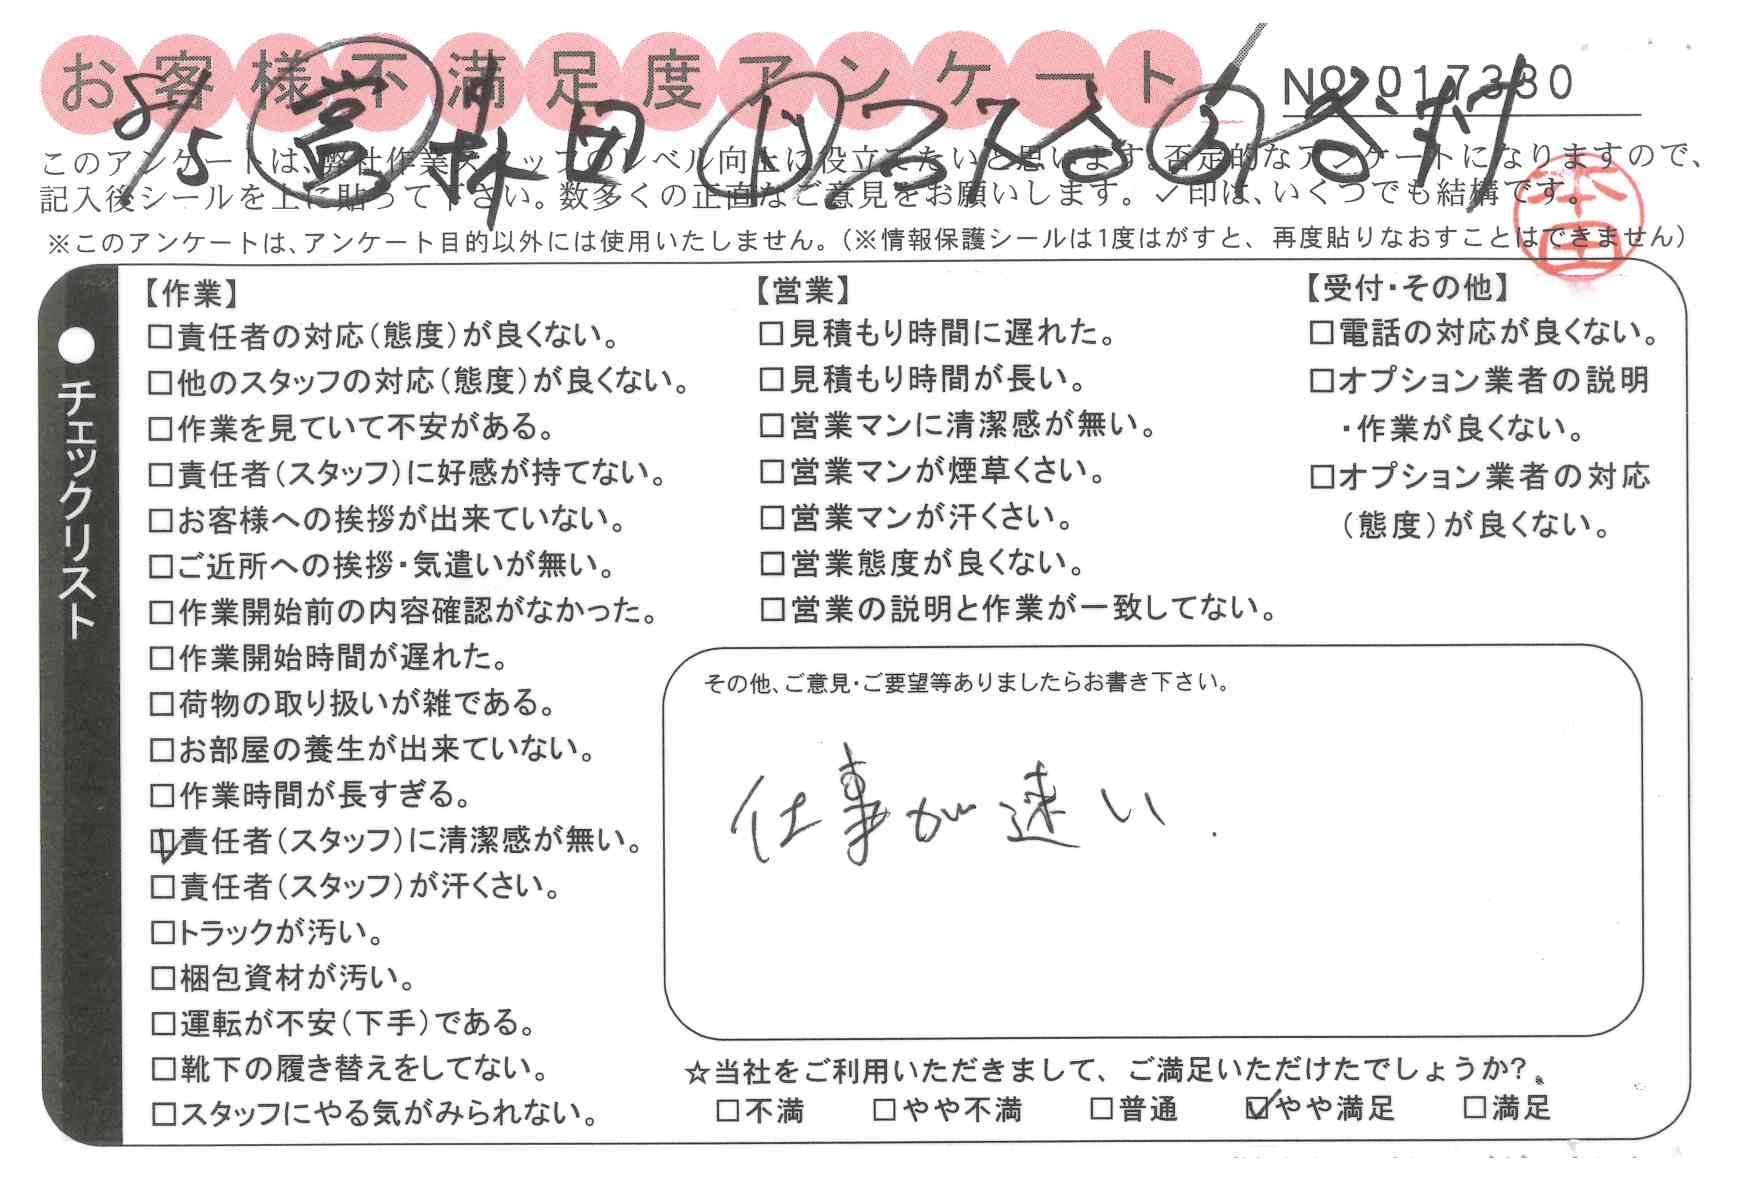 お客様不満足度アンケート
NO. 017330
8/5 営 林田
このアンケートは、弊社作業スタッフのレベル向上に役立てたいと思います。否定的なアンケートになりますので、
記入後シールを上に貼って下さい。数多くの正直なご意見をお願いします。✓印は、いくつでも結構です。
※このアンケートは、アンケート目的以外には使用いたしません。(※情報保護シールは1度はがすと、再度貼りなおすことはできません)
チェックリスト
【作業】
□責任者の対応(態度)が良くない。
□他のスタッフの対応(態度)が良くない。
□作業を見ていて不安がある。
□責任者(スタッフ)に好感が持てない。
□お客様への挨拶が出来ていない。
□ご近所への挨拶・気遣いが無い。
□作業開始前の内容確認がなかった。
□作業開始時間が遅れた。
□荷物の取り扱いが雑である。
□お部屋の養生が出来ていない。
□作業時間が長すぎる。
☑責任者(スタッフ)に清潔感が無い。
□責任者(スタッフ)が汗くさい。
□トラックが汚い。
□梱包資材が汚い。
□運転が不安(下手)である。
□靴下の履き替えをしてない。
□スタッフにやる気がみられない。
【営業】
□見積もり時間に遅れた。
□見積もり時間が長い。
□営業マンに清潔感が無い。
□営業マンが煙草くさい。
□営業マンが汗くさい。
□営業態度が良くない。
□営業の説明と作業が一致してない。
【受付・その他】
□電話の対応が良くない。
□オプション業者の説明
・作業が良くない。
□オプション業者の対応
(態度)が良くない。
その他、ご意見・ご要望等ありましたらお書き下さい。
仕事が速い.
☆当社をご利用いただきまして、ご満足いただけたでしょうか?
□不満 □やや不満 □普通 ☑やや満足 □満足